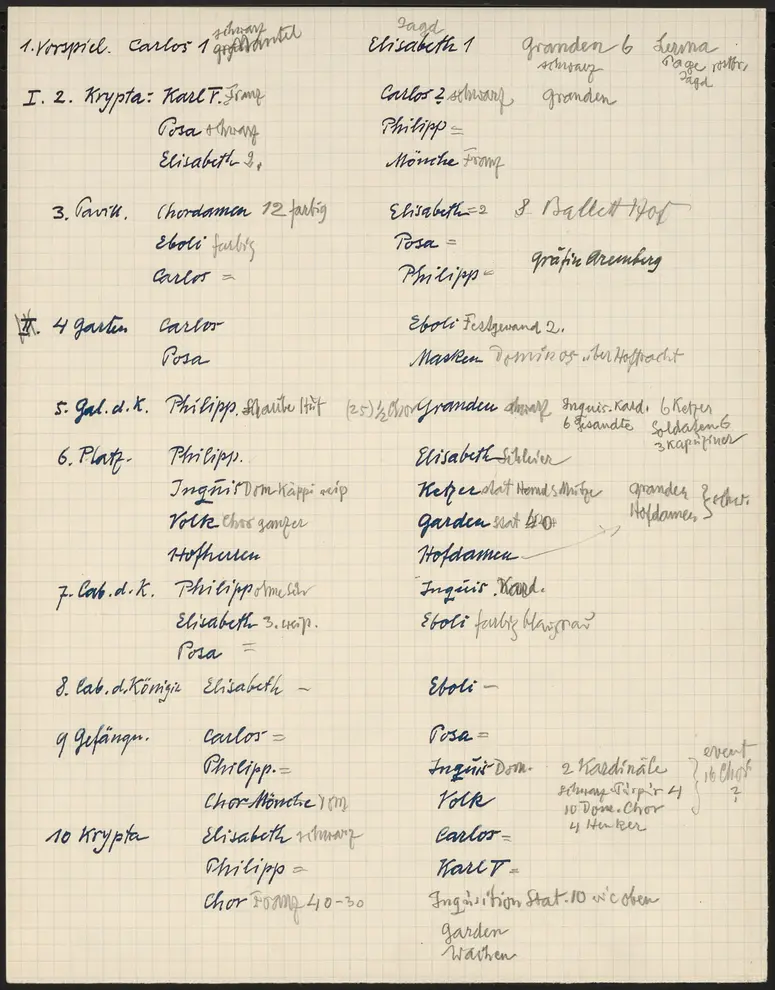 schwarz Jagd
1. Vorspiel. Carlos 1 Elisabeth 1 Granden 6 Lerma
schwarz Page
Jagd
I. 2. Krypta: Karl V. Franz Carlos 2 schwarz Granden
Posa schwarz Philipp =
Elisabeth 2. Mönche Franz
3. Pavill. Chordamen 12 farbig Elisabeth = 2 8 Ballett Hof
Eboli farbig Posa =
Gräfin Aremberg
Carlos = Philipp =
II. 4 Garten Carlos Eboli Festgewand 2.
Posa Masken Dominos über Hoftracht
5. Gal. d. K. Philipp. Schaube Hut (25) ½ Chor Granden schwarz Inquis. Kard. 6 Ketzer
6 Gesandte Soldaten 6
3 Kapuziner
6. Platz. Philipp. Elisabeth Schleier
Inquis Dom. Käppi Ketzer stat Granden
Volk Chor ganzer Garden stat 40 Hofdamen
Hofherren Hofdamen
7. Cab. d. K. Philipp ohne Inquis. Kard.
Elisabeth 3. Eboli farbig blaugrau
Posa =
8. Cab. d. Königin Elisabeth – Eboli –
9 Gefängn. Carlos = Posa = event
Philipp. = Inquis Dom. 2 Kardinäle 16 Chor
?
Chor Mönche Volk schwarz 4
10 Dom. Chor
4 Henker
10 Krypta Elisabeth schwarz Carlos =
Philipp = Karl V =
Chor Franz 40-30 Inquisition Stat. 10 wie oben
Garden
Wachen